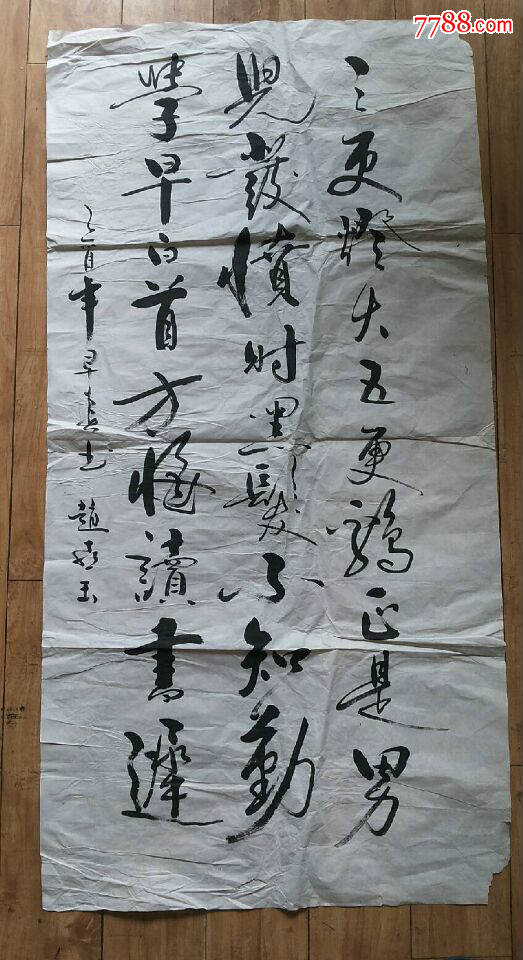 7788.com
三更燈火五更鷄正是男
兒發憤时黑髮不知勤
學早白首方悔讀書遲
乙酉年早春书 趙
玉